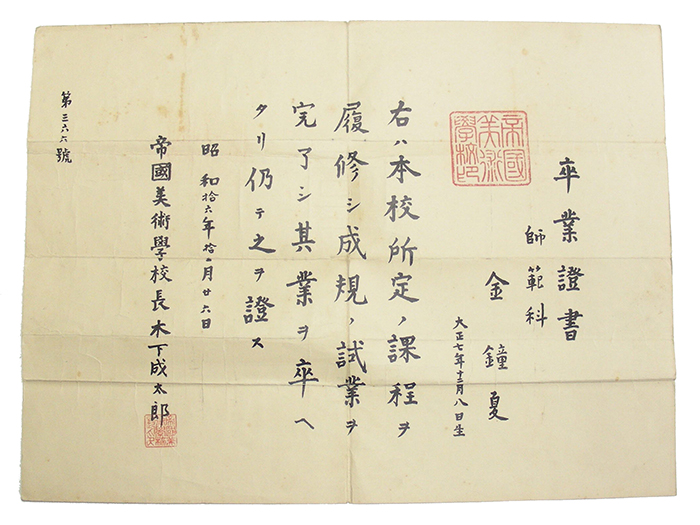 卒業證書
師範科
金鐘夏
大正七年十二月八日生
帝國美術學校印
右ハ本校所定ノ課程ヲ
履修シ成規ノ試業ヲ
完了シ其業ヲ卒ヘ
タリ仍テ之ヲ證ス
昭和拾六年拾二月廿六日
帝國美術學校長木下成太郎
第三六六號